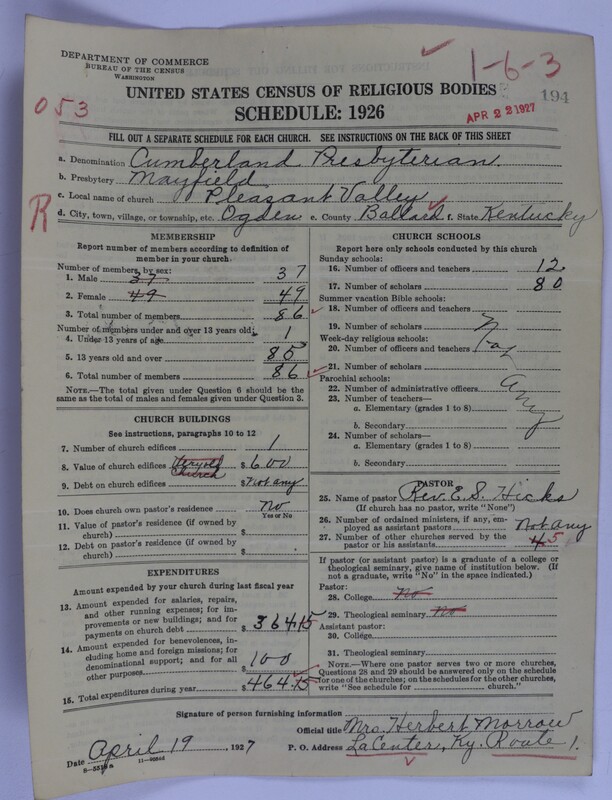 DEPARTMENT OF COMMERCE
BUREAU OF THE CENSUS
WASHINGTON
1-6-3
053
194
APR 22 1927
UNITED STATES CENSUS OF RELIGIOUS BODIES
SCHEDULE: 1926
FILL OUT A SEPARATE SCHEDULE FOR EACH CHURCH. SEE INSTRUCTIONS ON THE BACK OF THIS SHEET
a. Denomination Cumberland Presbyterian
b. Presbytery Mayfield
c. Local name of church Pleasant Valley
R
d. City, town, village, or township, etc. Ogden e. County Ballard f. State Kentucky
MEMBERSHIP
Report number of members according to definition of
member in your church.
Number of members, by sex:
1. Male 37 37
2. Female 49 49
3. Total number of members 86
Number of members under and over 13 years old:
4. Under 13 years of age 1
5. 13 years old and over 85
6. Total number of members 86
NOTE.—The total given under Question 6 should be
the same as the total of males and females given under Question 3.
CHURCH BUILDINGS
See instructions, paragraphs 10 to 12
7. Number of church edifices 1
8. Value of church edifices Very old Church $ 600
9. Debt on church edifices $ not any
10. Does church own pastor's residence No
Yes or No
11. Value of pastor's residence (if owned by
church) $
12. Debt on pastor's residence (if owned by
church) $
EXPENDITURES
Amount expended by your church during last fiscal year
13. Amount expended for salaries, repairs,
and other running expenses; for im-
provements or new buildings; and for
payments on church debt $ 364.15
14. Amount expended for benevolences, in-
cluding home and foreign missions; for
denominational support; and for all
other purposes 100
15. Total expenditures during year $ 464.15
CHURCH SCHOOLS
Report here only schools conducted by this church
Sunday schools:
16. Number of officers and teachers 12
17. Number of scholars 80
Summer vacation Bible schools:
18. Number of officers and teachers
19. Number of scholars
Week-day religious schools:
20. Number of officers and teachers
21. Number of scholars
Parochial schools:
22. Number of administrative officers
23. Number of teachers—
a. Elementary (grades 1 to 8)
b. Secondary
24. Number of scholars—
a. Elementary (grades 1 to 8)
b. Secondary
PASTOR
25. Name of pastor Rev. E. S. Hicks
(If church has no pastor, write "None")
26. Number of ordained ministers, if any, em-
ployed as assistant pastors Not any
27. Number of other churches served by the
pastor or his assistants 4 5
If pastor (or assistant pastor) is a graduate of a college or
theological seminary, give name of institution below. (If
not a graduate, write "No" in the space indicated.)
Pastor:
28. College No
29. Theological seminary No
Assistant pastor:
30. College
31. Theological seminary
NOTE.—Where one pastor serves two or more churches,
Questions 28 and 29 should be answered only on the schedule
for one of the churches; on the schedules for the other churches,
write "See schedule for church."
Signature of person furnishing information
Official title Mrs. Herbert Morrow
Date April 19, 1927 P. O. Address LaCenter, Ky. Route 1.